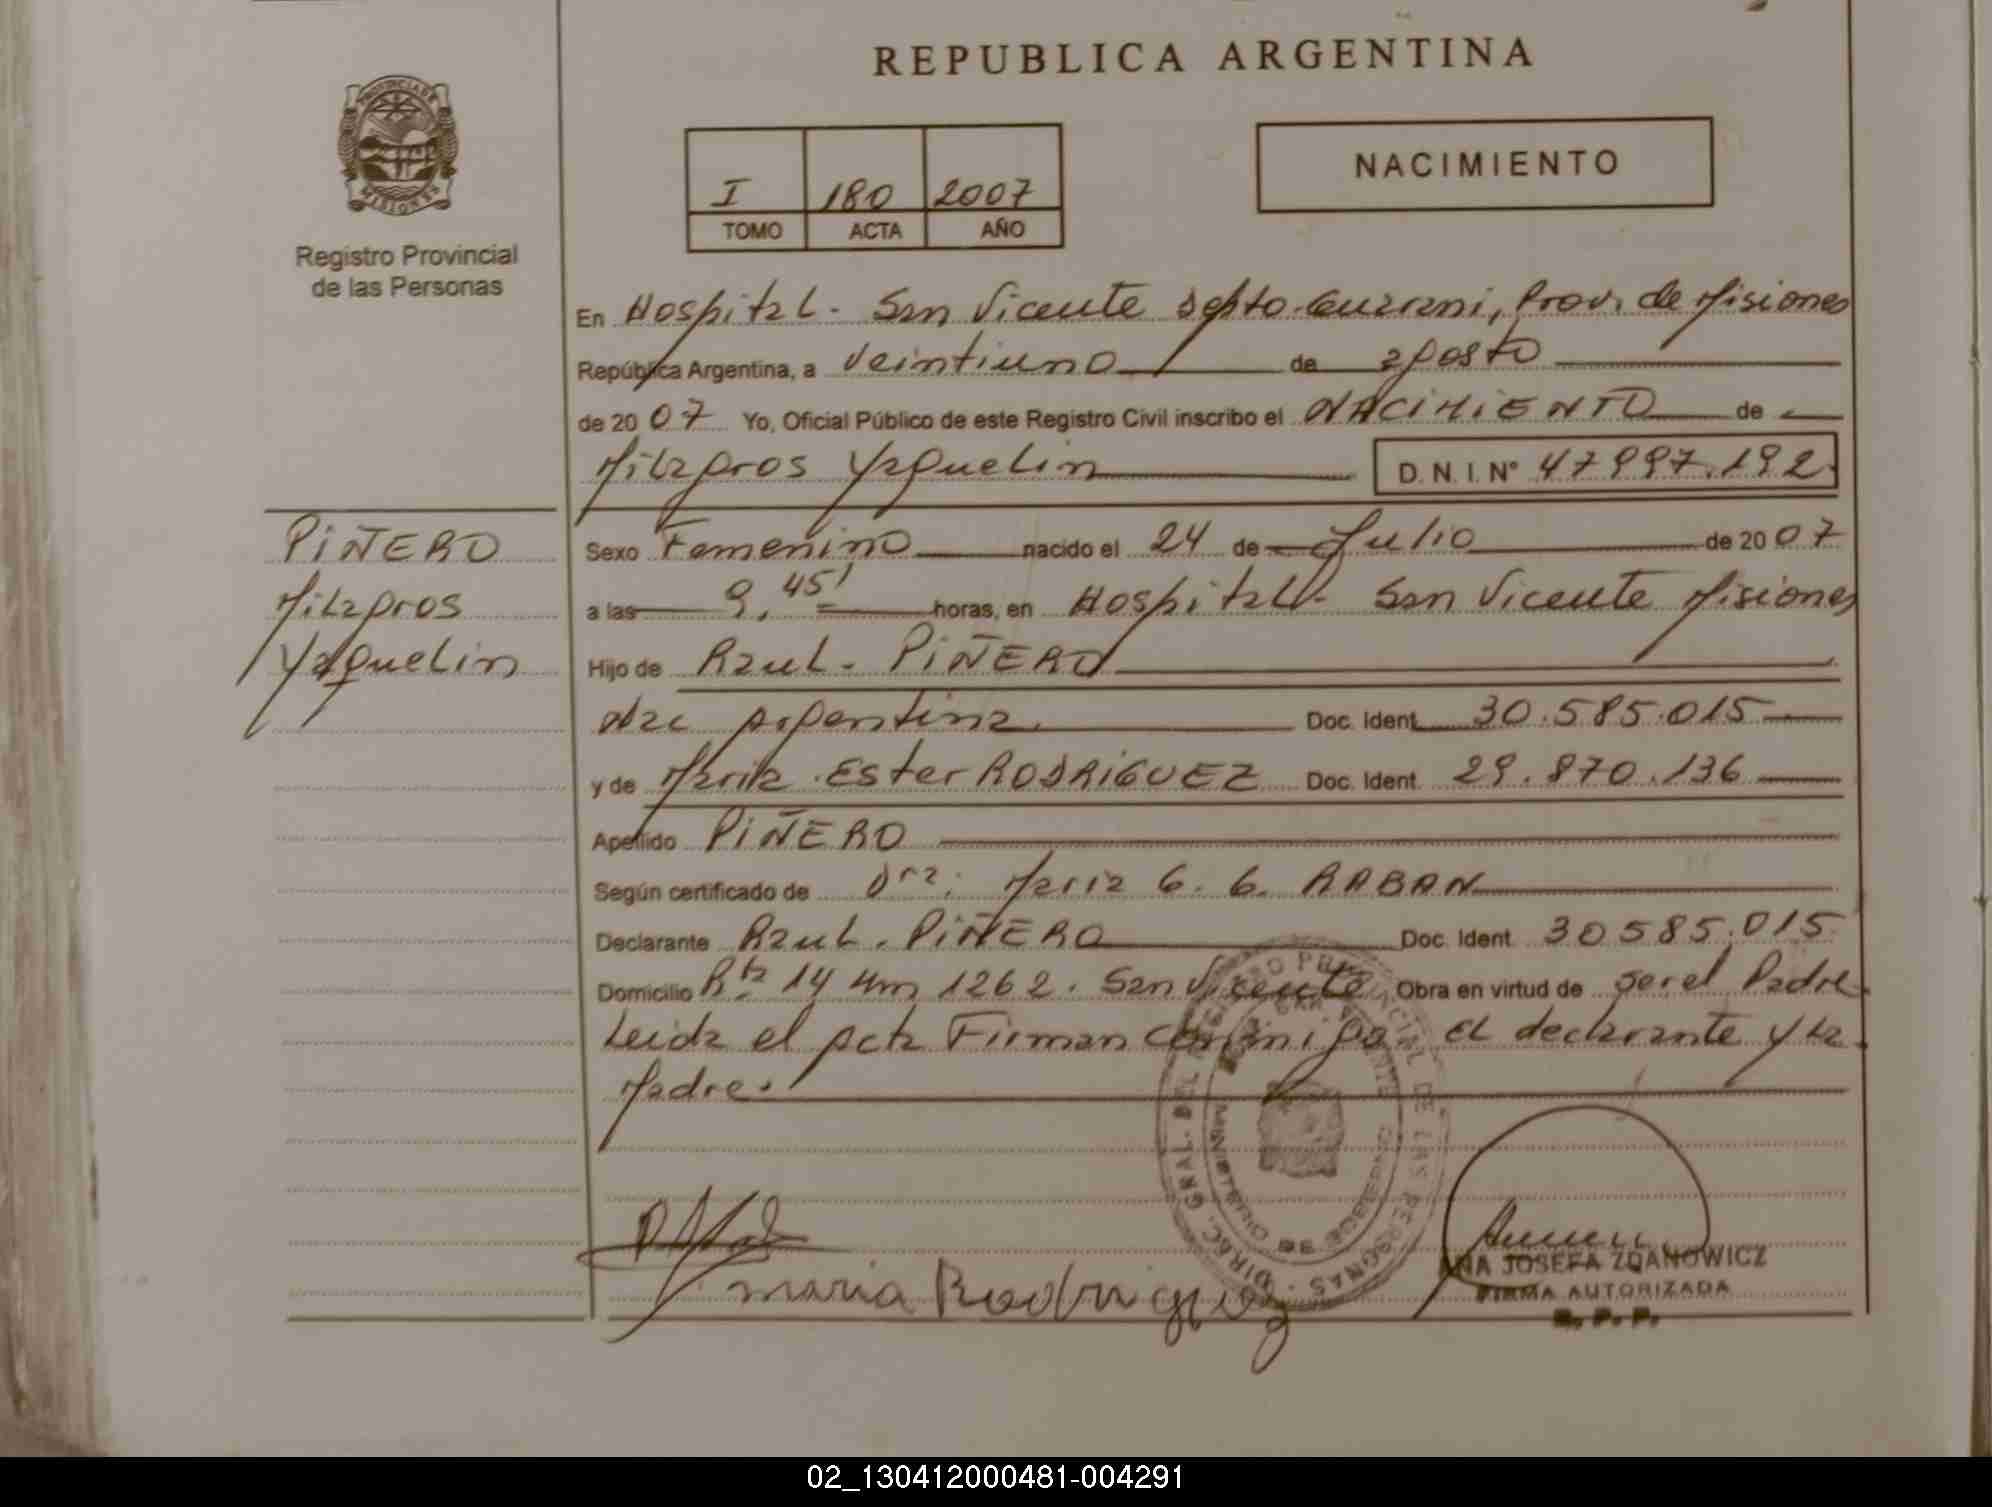 REPUBLICA ARGENTINA
PROVINCIA DE
MISIONES
Registro Provincial
de las Personas
I 180 2007
TOMO ACTA AÑO
NACIMIENTO
En Hospital - San Vicente Depto. Guarani, Prov. de Misiones
República Argentina, a veintiuno de agosto
de 2007 Yo, Oficial Público de este Registro Civil inscribo el NACIMIENTO de
Milagros Yaquelin D.N.I. N° 47997.192
PIÑERO
Milagros
Yaquelin
Sexo Femenino nacido el 24 de Julio de 2007
a las 9,45' horas, en Hospital - San Vicente Misiones
Hijo de Raul - PIÑERO
Nac Argentina Doc. Ident. 30.585.015
y de Maria Ester RODRIGUEZ Doc. Ident. 29.870.136
Apellido PIÑERO
Según certificado de Dra. Maria G. G. RABAN
Declarante Raul. PIÑERO Doc. Ident. 30585.015
Domicilio Rta 14 Km 1262. San Vicente Obra en virtud de ser el Padre
Leida el acta Firman conmigo el declarante y la
Madre.
DIREC. GRAL. DEL REGISTRO PROVINCIAL DE LAS PERSONAS
MINISTERIO DE GOBIERNO
Maria Rodriguez
ANA JOSEFA ZDANOWICZ
FIRMA AUTORIZADA
R. P. P.
02_130412000481-004291